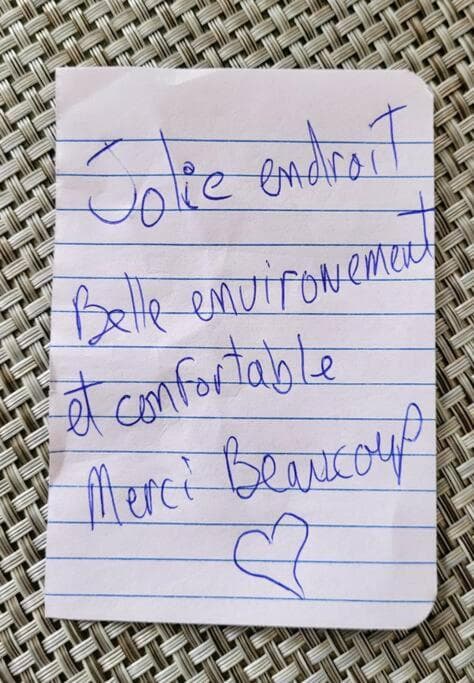 Jolie endroit
Belle environement
et confortable
Merci Beaucoup